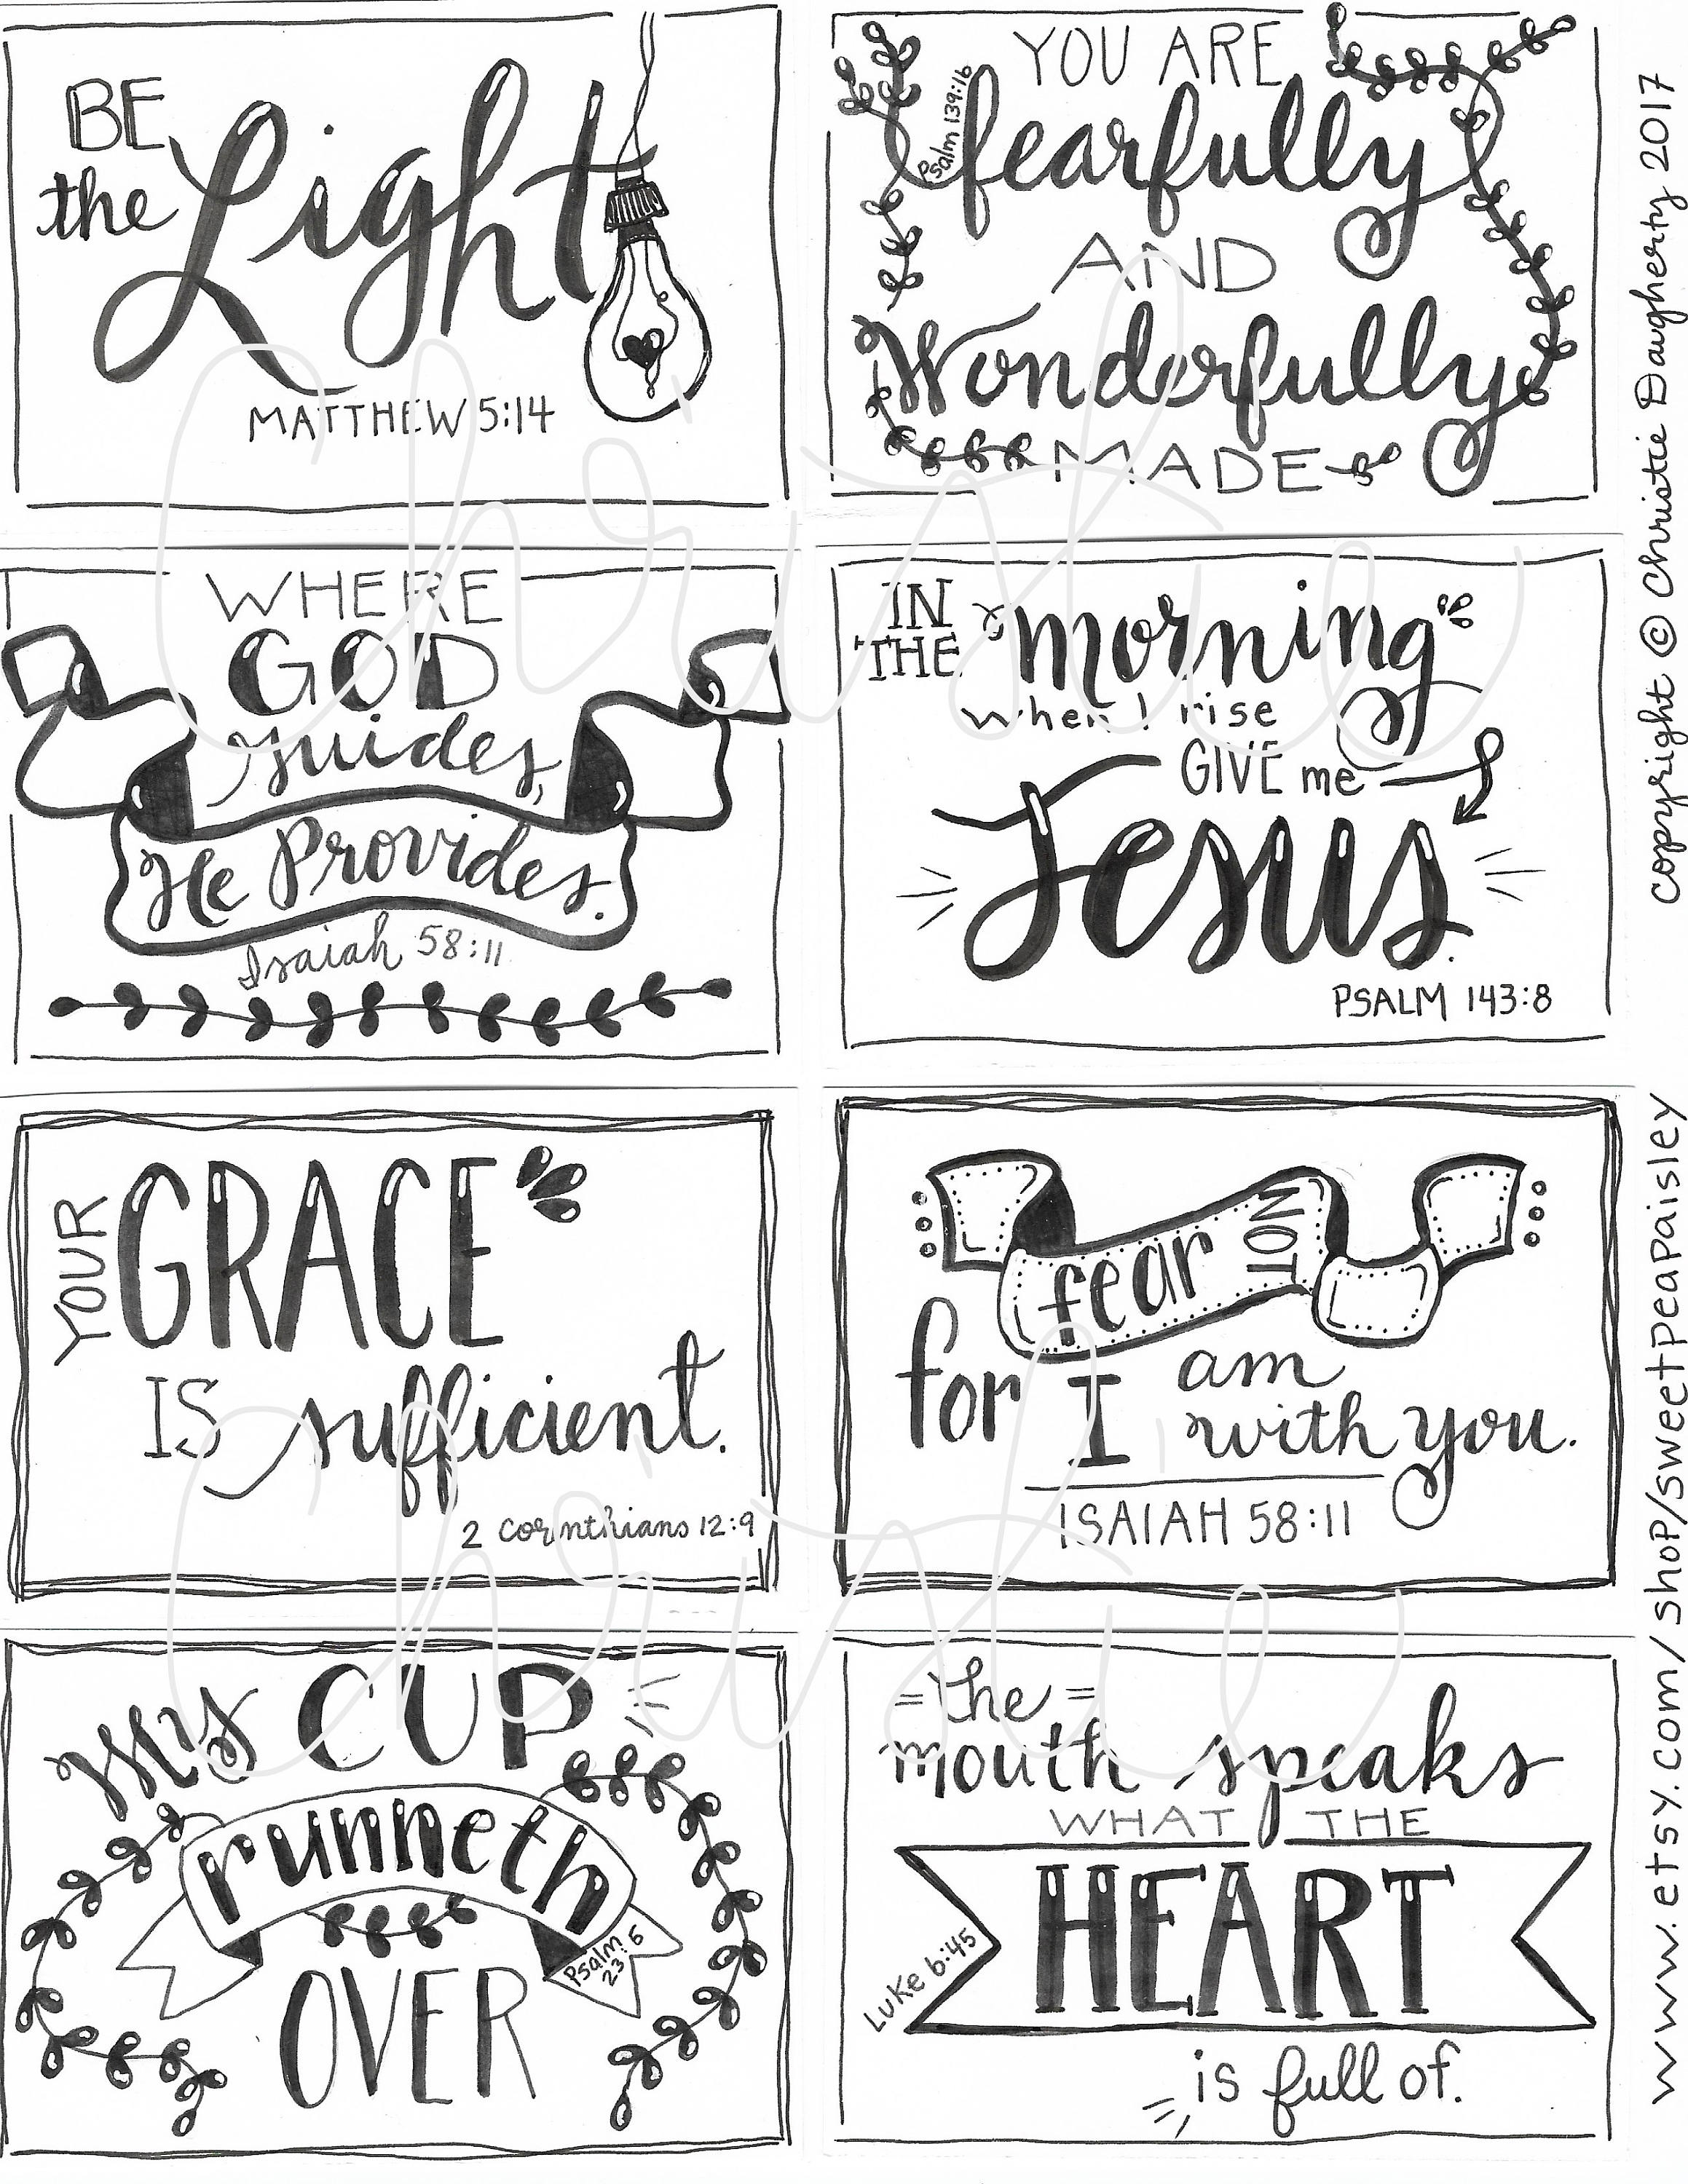 BE
the Light
MATTHEW 5:14
YOU ARE
fearfully
Psalm 139:16
AND
Wonderfully
MADE
WHERE
GOD
Guides,
He Provides.
Isaiah 58:11
IN THE morning
when I rise
GIVE me
Jesus.
PSALM 143:8
YOUR GRACE
IS sufficient.
2 corinthians 12:9
fear NOT
for I am
with you.
ISAIAH 58:11
My CUP
runneth
OVER
Psalm
23:5
=the=
mouth speaks
WHAT THE
HEART
Luke 6:45
is full of.
copyright © Christie Daugherty 2017
www.etsy.com/shop/sweetpeapaisley
Christie
Christie